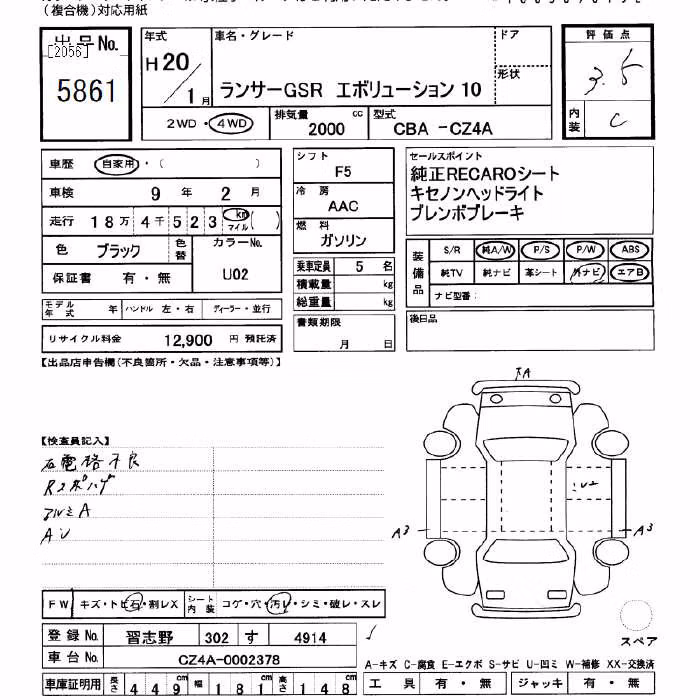 (複合機)対応用紙
出品No.
[2056]
5861
年式 車名・グレード ドア
H20/1月 ランサーGSR エボリューション 10
形状
2WD・4WD 排気量 2000 cc 型式 CBA -CZ4A
評価点
3.5
内装 C
車歴 自家用・( )
車検 9年 2月
走行 18万4千523 km マイル ( )
色 ブラック 色替 カラーNo. U02
保証書 有・無
モデル年式 年 ハンドル 左・右 ディーラー・並行
リサイクル料金 12,900 円 預託済
シフト F5
冷房 AAC
燃料 ガソリン
乗車定員 5 名
積載量 kg
総重量 kg
書類期限 月 日
セールスポイント
純正RECAROシート
キセノンヘッドライト
ブレンボブレーキ
装備品 S/R 純A/W P/S P/W ABS
純TV 純ナビ 革シート 外ナビ エアB
ナビ型番:
後日品
【出品店申告欄(不良箇所・欠品・注意事項等)】
【検査員記入】
アルミA
AU
A
U2
A3 A3
スペア
FW キズ・トビ石・割レX シート内装 コゲ・穴・汚レ・シミ・破レ・スレ
登録No. 習志野 302 す 4914
車台No. CZ4A-0002378
車庫証明用 長さ 449cm 幅 181cm 高さ 148cm
A-キズ C-腐食 E-エクボ S-サビ U-凹ミ W-補修 XX-交換済
工具 有・無 ジャッキ 有・無